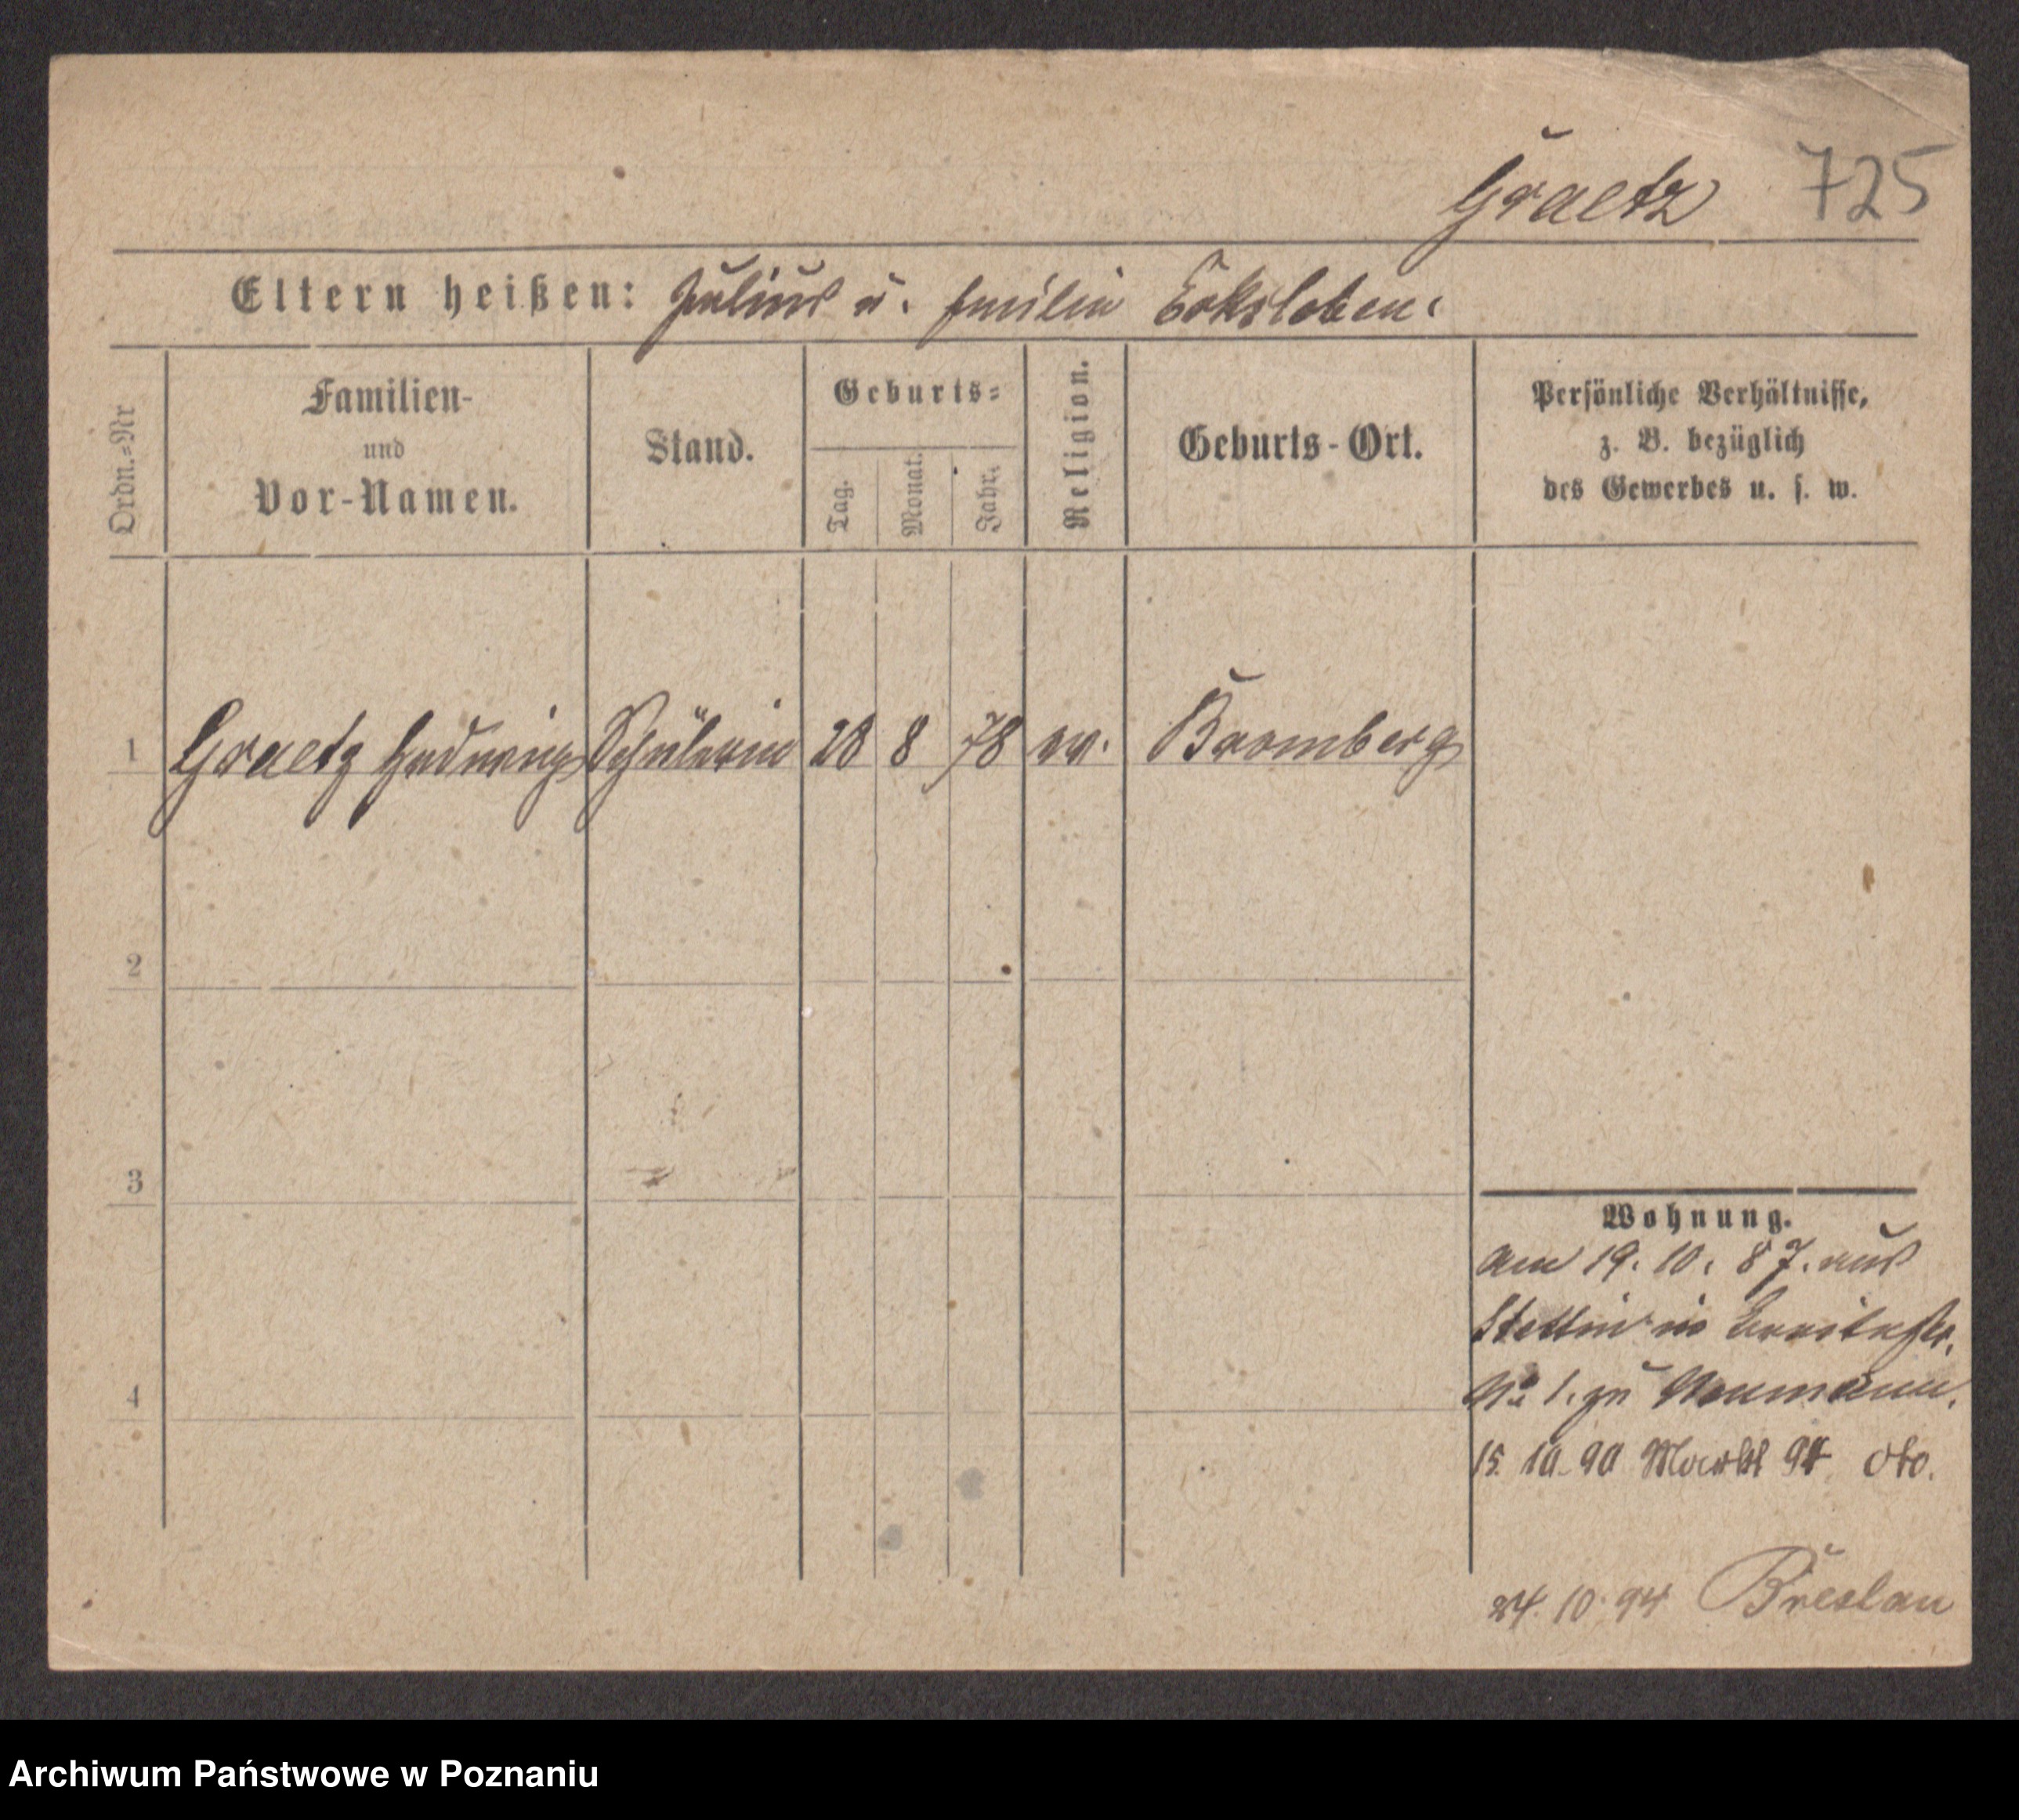 Graetz 725
Eltern heißen: Julius u. Emilie Eksleben.
Ordn.=Nr
Familien- und Vor-Namen.
Stand.
Geburts=
Tag.
Monat.
Jahr.
Religion.
Geburts-Ort.
Persönliche Verhältnisse,
z. B. bezüglich
des Gewerbes u. s. w.
1 Graetz Hedwig Schülerin 28 8 78 ev. Bromberg
2
3
4
Wohnung.
am 19. 10. 87. aus
Stettin in Breitestr.
No 1. zu Neumann.
15. 10. 90 Markt 94 dto.
24. 10. 94 Breslau
Archiwum Państwowe w Poznaniu